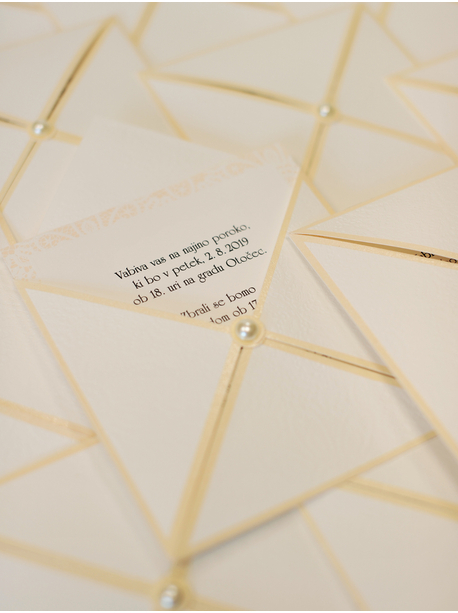 Vabiva vas na najino poroko,
ki bo v petek, 2. 8. 2019
ob 18. uri na gradu Otočec.
Zbrali se bomo
ob 17